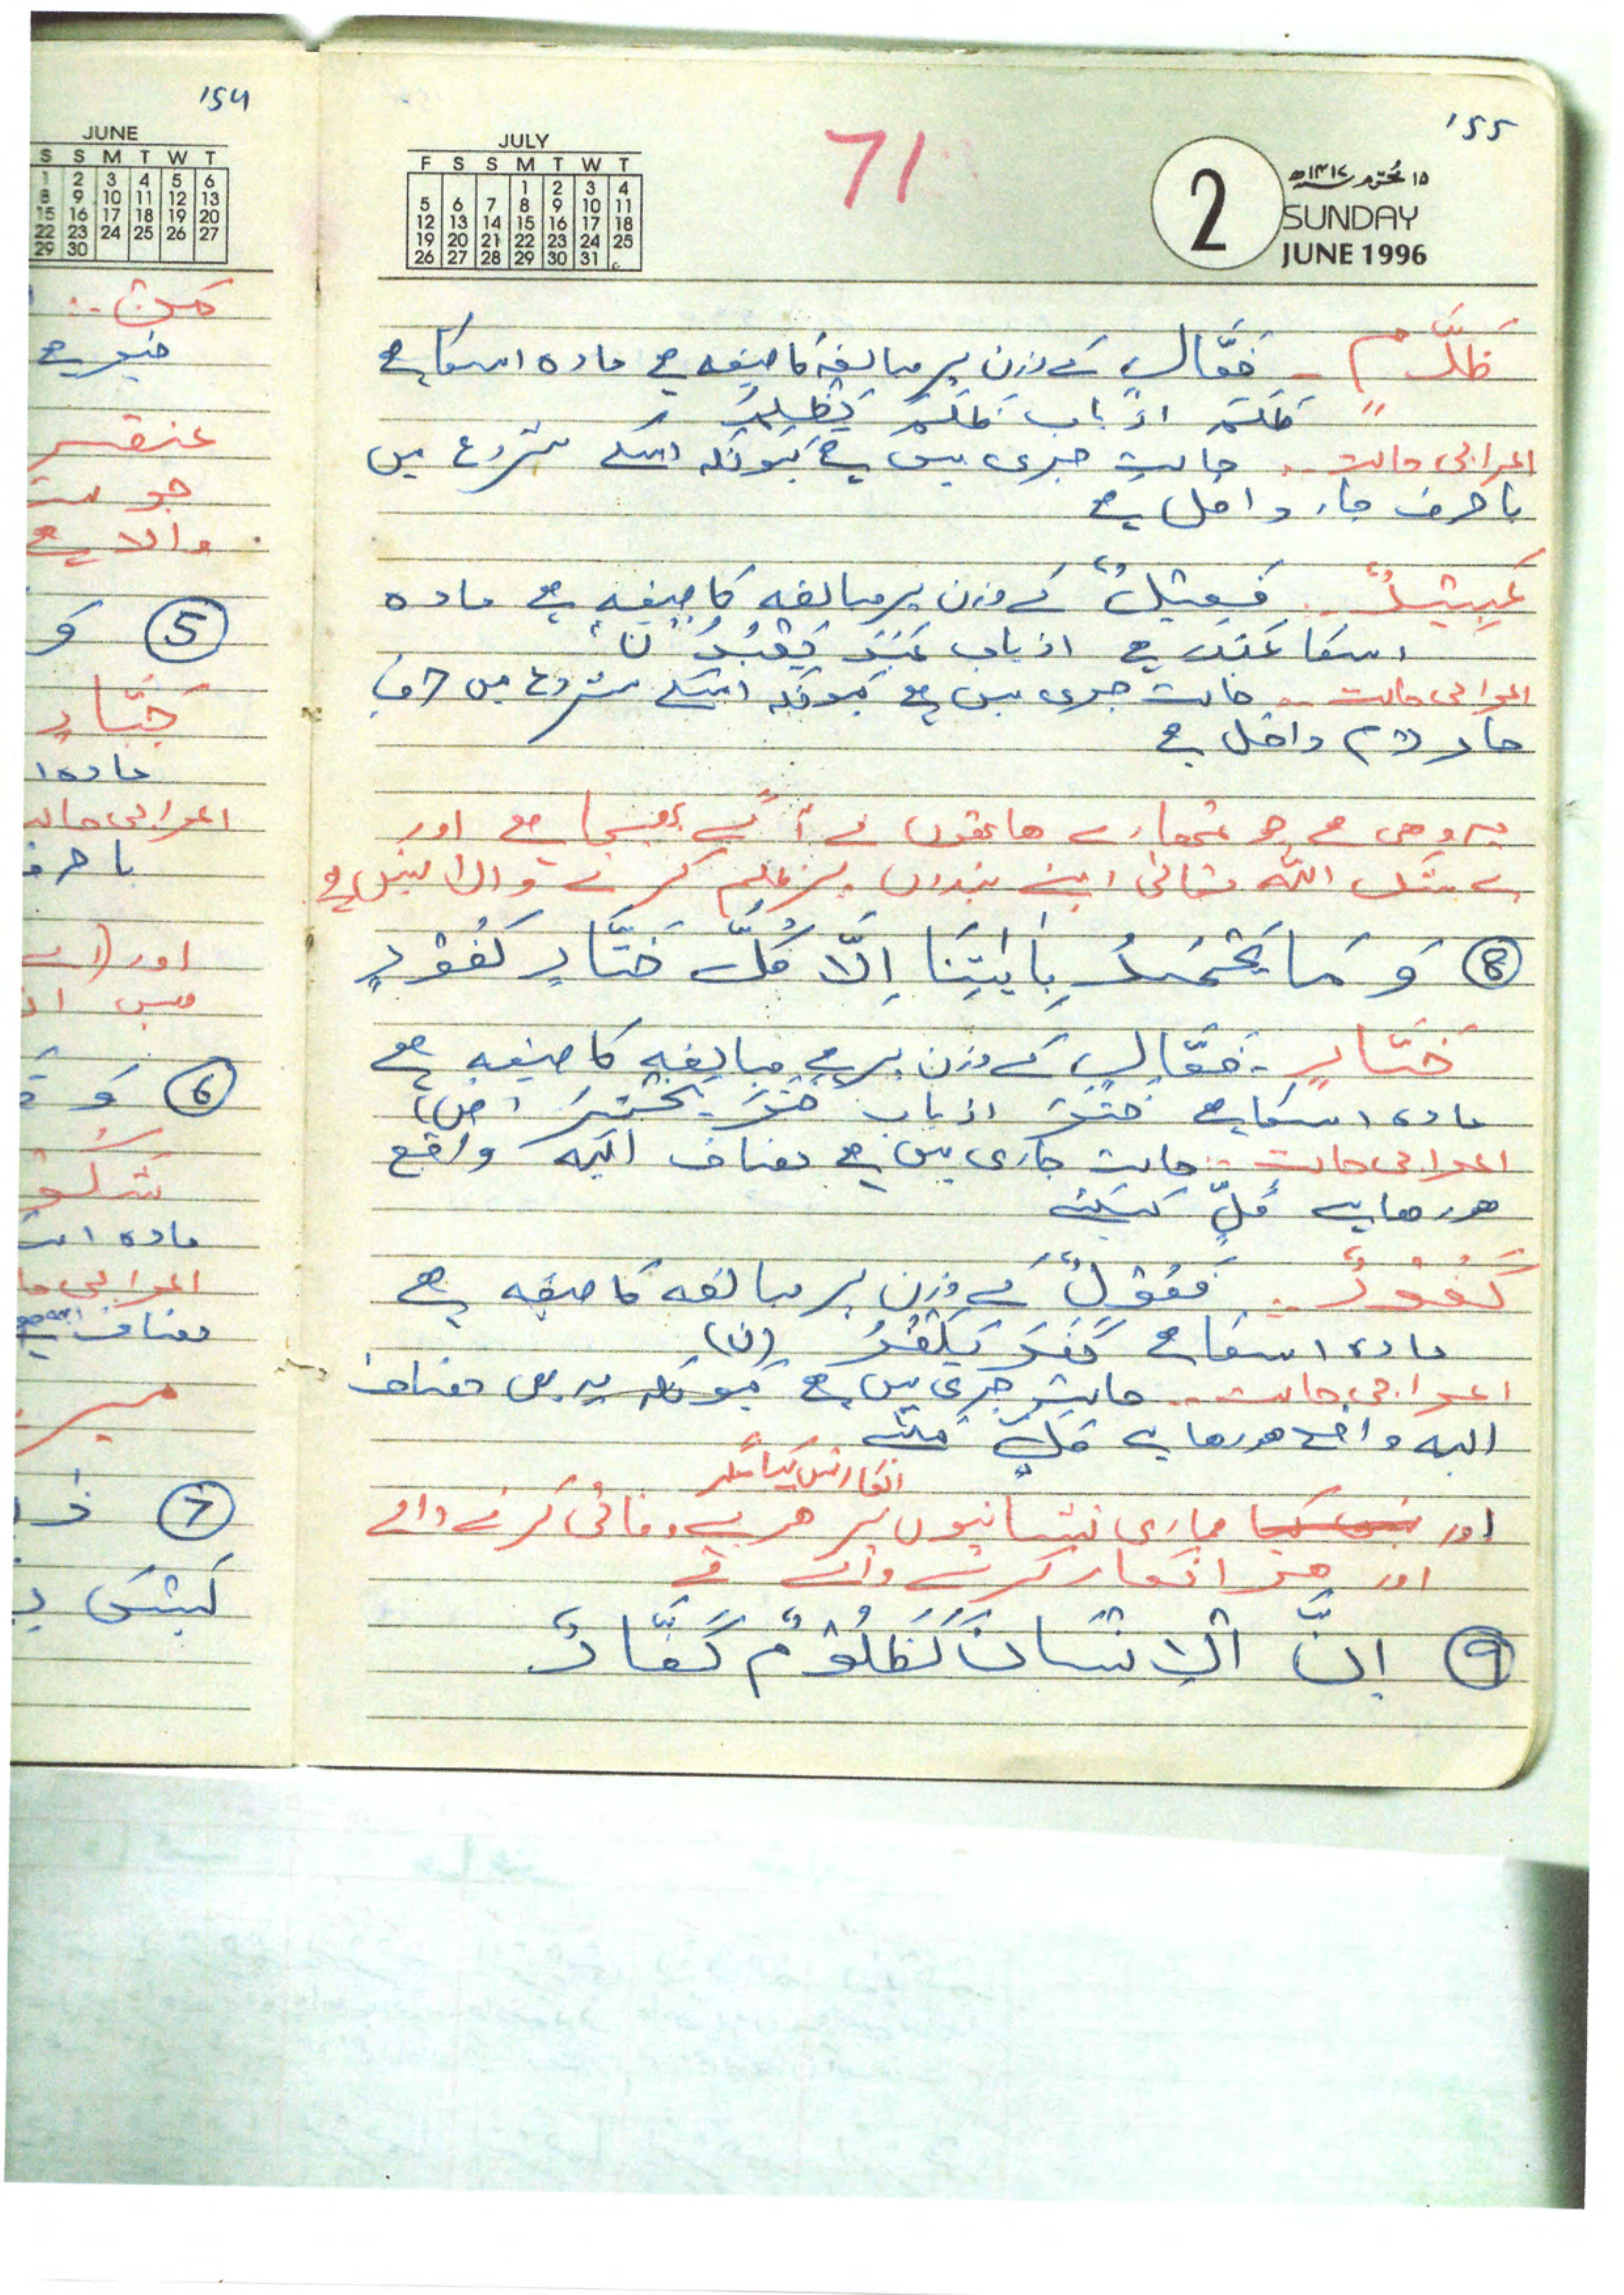 154
JUNE
S S M T W T
1 2 3 4 5 6
8 9 10 11 12 13
15 16 17 18 19 20
22 23 24 25 26 27
29 30
والا ہے
5 وَ
خَتَّارٍ
مادہ ا
اعرابی حالت
با حرف
اور
6 وَ
مادہ اس
اعرابی حا
مضاف
7
لَيْسَ بِ
155
71
JULY
F S S M T W T
1 2 3 4
5 6 7 8 9 10 11
12 13 14 15 16 17 18
19 20 21 22 23 24 25
26 27 28 29 30 31
2
۱۵ محرم ۱۴۱۷ھ
SUNDAY
JUNE 1996
ظَلَّامٍ - فَعَّالٍ کے وزن پر مبالغہ کا صیغہ ہے مادہ اسکا ہے
ظلم از باب ظَلَمَ یَظْلِمُ
اعرابی حالت .. حالت جری میں ہے کیونکہ اسکے شروع میں
با حرف جار داخل ہے
عَبِيْدٌ .. فَعِيْلٌ کے وزن پر مبالغہ کا صیغہ ہے مادہ
اسکا عَبَدَ ہے از باب عَبَدَ یَعْبُدُ ن
اعرابی حالت .. حالت جری میں ہے کیونکہ اسکے شروع میں حرف
جار لام داخل ہے
یہ وہی ہے جو تمھارے ھاتھوں نے آگے بھیجا ہے اور
بے شک اللہ تعالی اپنے بندوں پر ظلم کرنے والا نہیں ہے
8 وَ مَا يَجْحَدُ بِاٰيٰتِنَا اِلَّا كُلُّ خَتَّارٍ كَفُوْرٍ
خَتَّارٍ - فَعَّالٍ کے وزن پر ہے مبالغہ کا صیغہ ہے
مادہ اسکا ہے خَتَرَ از باب خَتَرَ یَخْتِرُ (ض)
اعرابی حالت .. حالت جاری میں ہے مضاف الیہ واقع
ھورھا ہے کُلُّ کیلئے
كَفُوْرٌ .. فَعُوْلٌ کے وزن پر مبالغہ کا صیغہ ہے
مادہ اسکا ہے كَفَرَ يَكْفُرُ (ن)
اعرابی حالت .. حالت جری میں ہے کیونکہ یہ بھی مضاف
الیہ واقع ھورھا ہے کُلُّ کیلئے
انکار نہیں کیا مگر
اور نہیں کیا ہماری نشانیوں پر ھر بے وفائی کرنے والے
اور انکار کرنے والے نے
9 اِنَّ الْاِنْسَانَ لَظَلُوْمٌ كَفَّارٌ